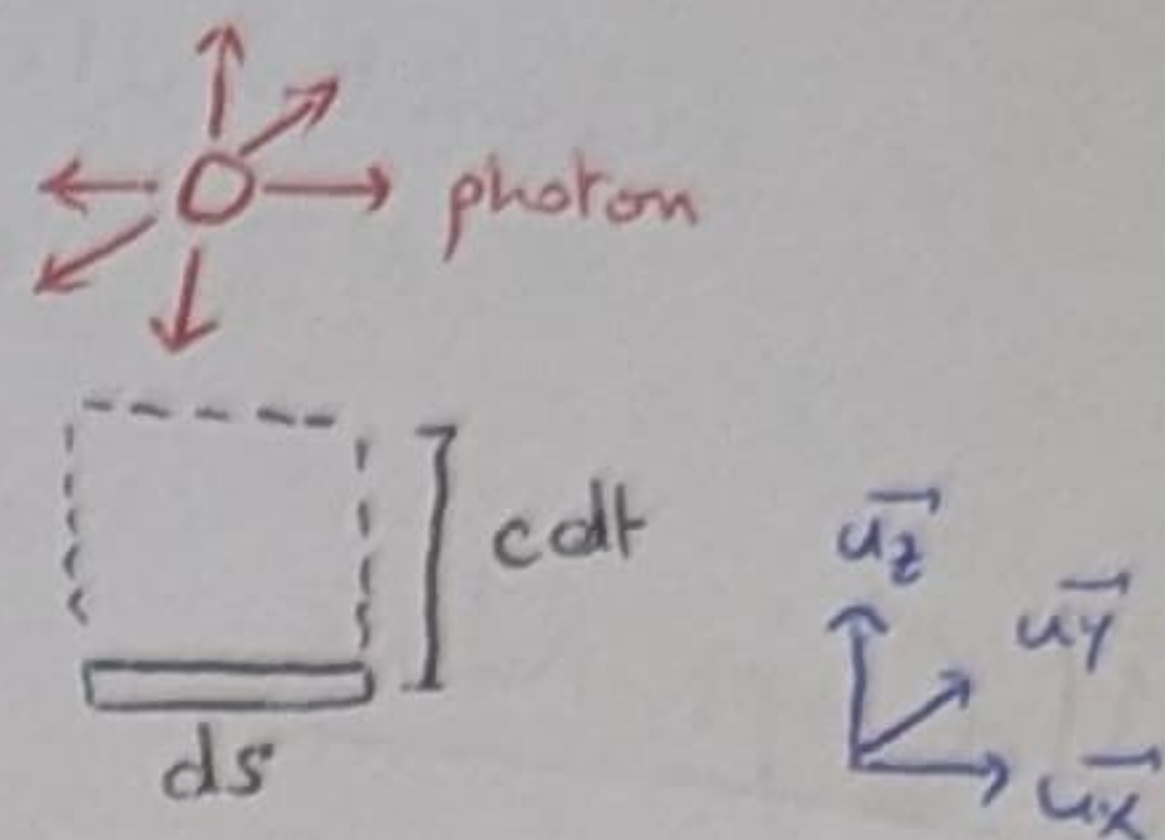 photon
cdt
ds
uz
uy
ux